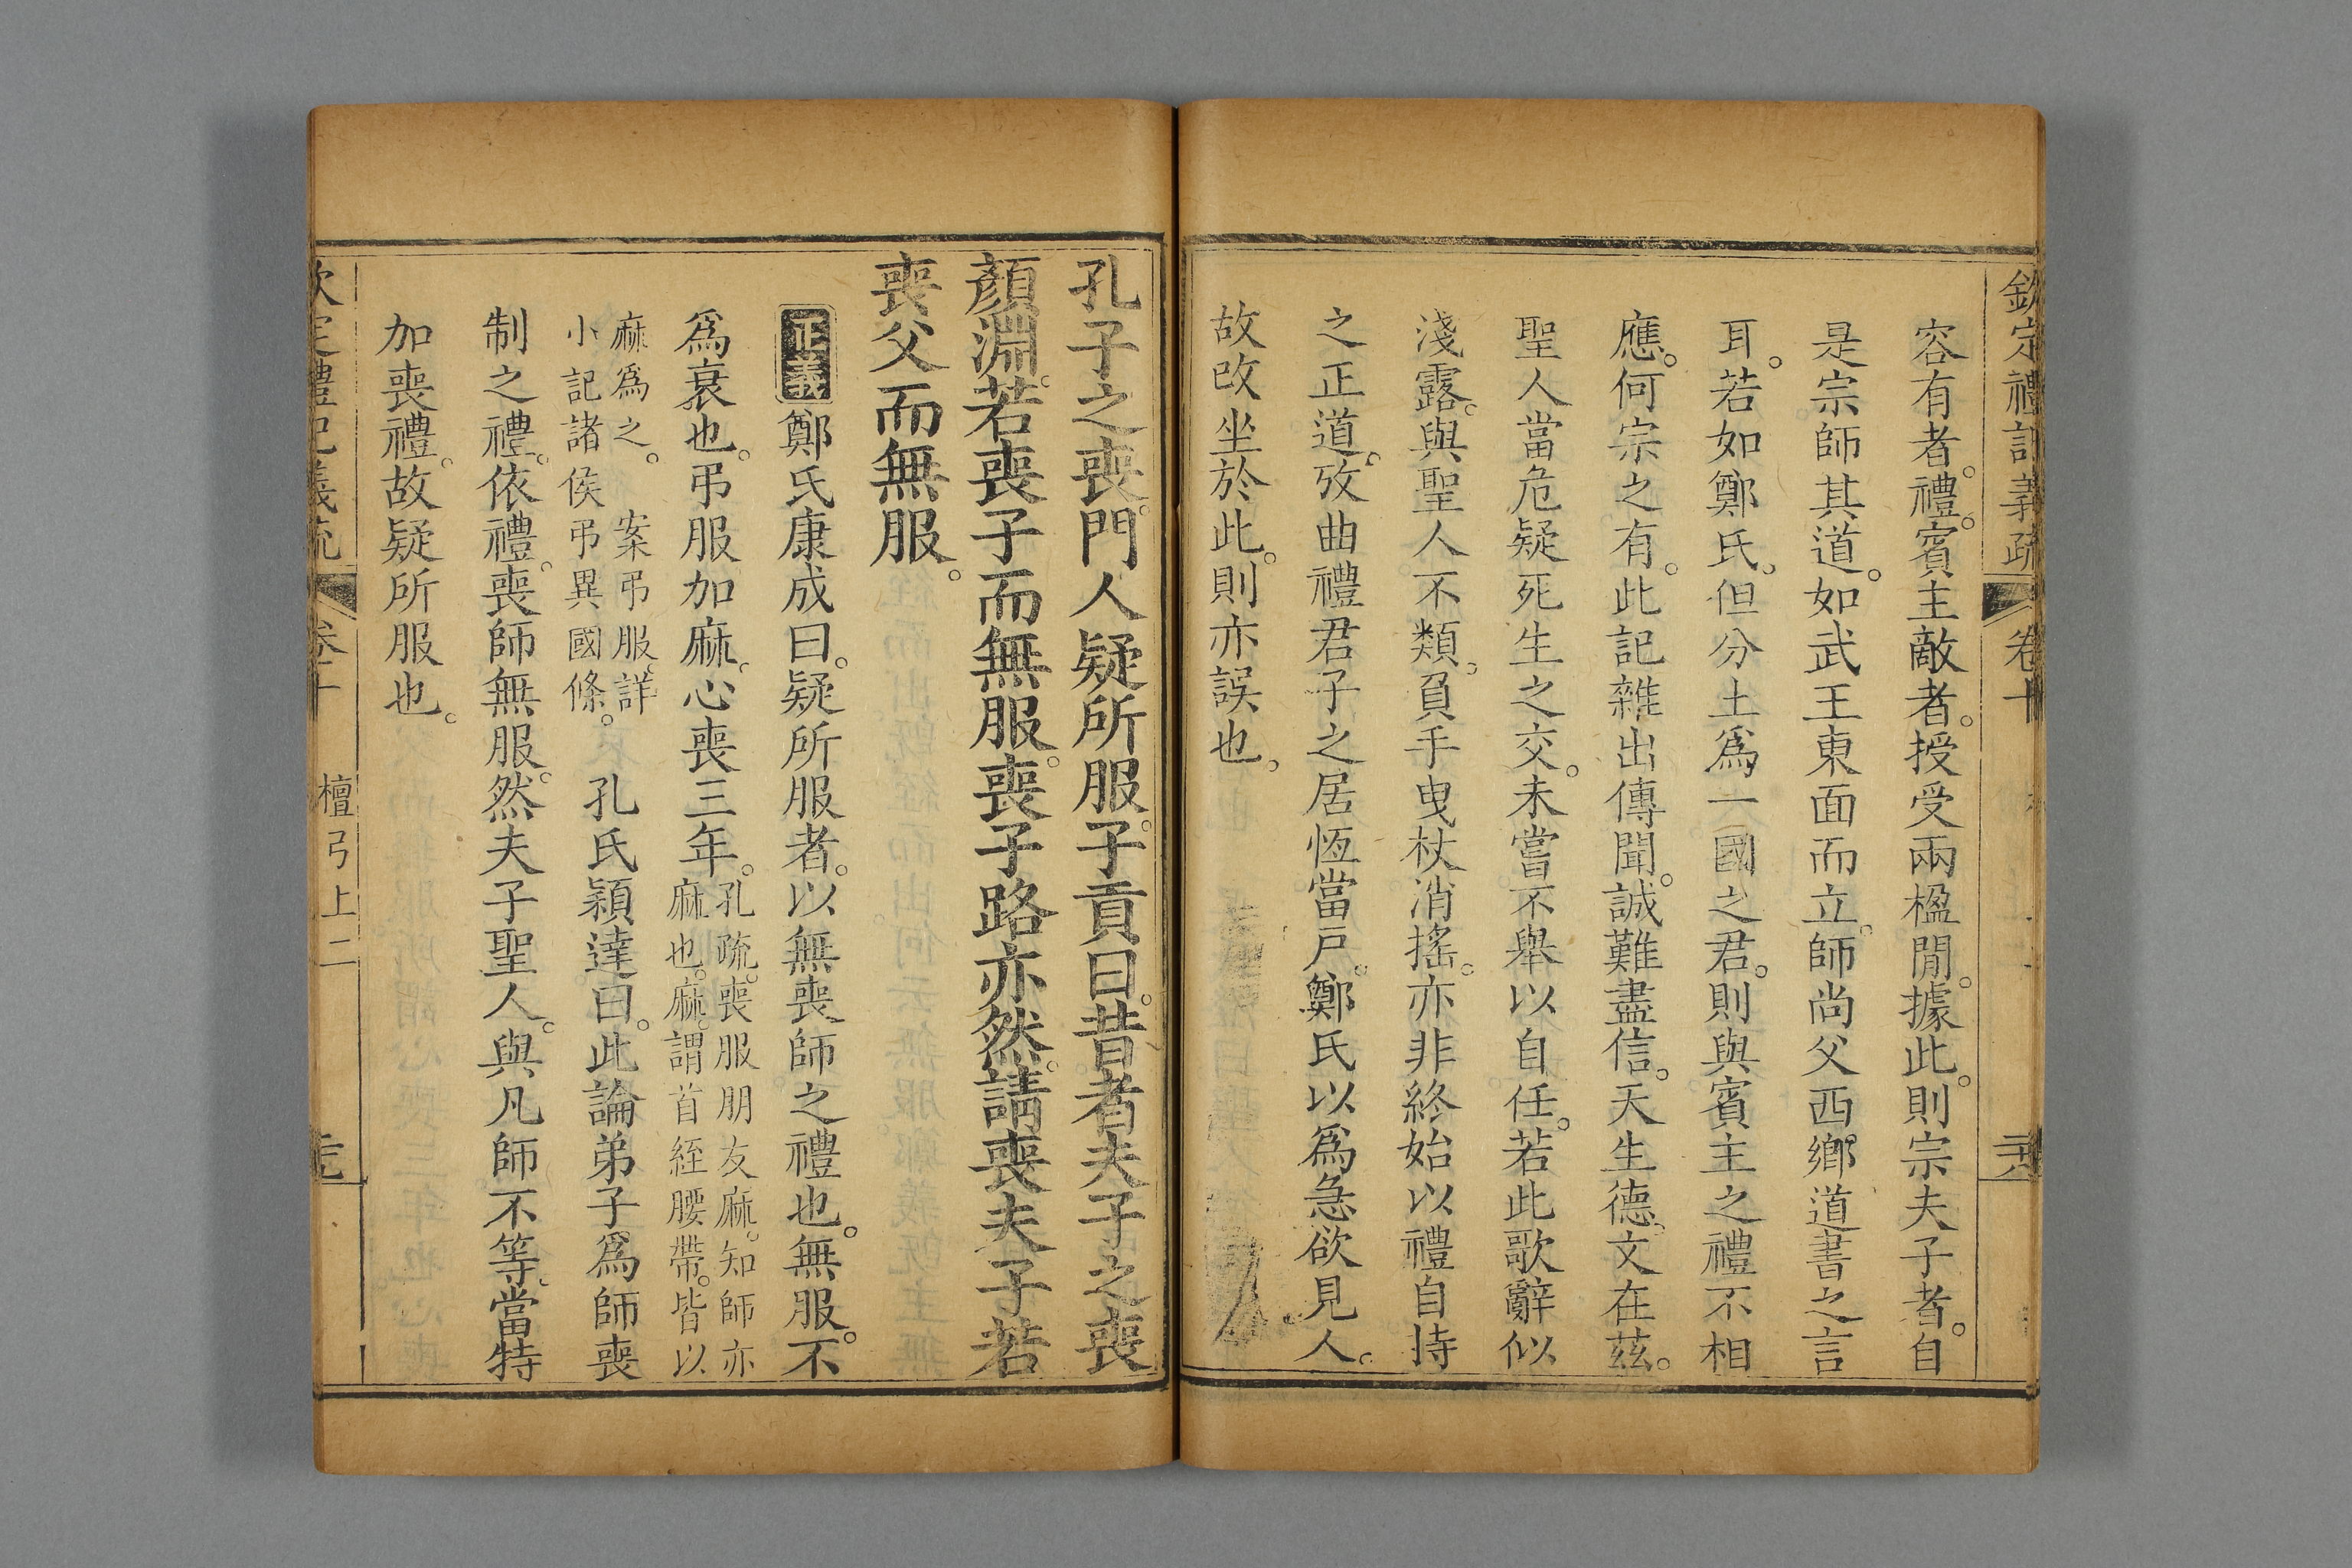 欽定禮記義疏 卷十
容有者。禮。賓主敵者。授受兩楹閒。據此。則宗夫子者。自
是宗師其道。如武王東面而立。師尚父西鄉道書之言
耳。若如鄭氏。但分土爲一國之君。則與賓主之禮不相
應。何宗之有。此記雜出傳聞。誠難盡信。天生德。文在茲。
聖人當危疑死生之交。未嘗不舉以自任。若此歌辭似
淺露。與聖人不類。負手曳杖消搖。亦非終始以禮自持
之正道。攷曲禮君子之居恆當戶。鄭氏以爲急欲見人。
故改坐於此。則亦誤也。
孔子之喪。門人疑所服。子貢曰。昔者夫子之喪
顏淵。若喪子而無服。喪子路亦然。請喪夫子若
喪父而無服。
正義 鄭氏康成曰。疑所服者。以無喪師之禮也。無服。不
爲衰也。弔服加麻。心喪三年。孔疏。喪服朋友麻。知師亦
麻也。麻。謂首絰腰帶。皆以
麻爲之。 案弔服。詳
小記諸侯弔異國條。 孔氏穎達曰。此論弟子爲師喪
制之禮。依禮。喪師無服。然夫子聖人。與凡師不等。當特
加喪禮。故疑所服也。
欽定禮記義疏 卷十 檀弓上二